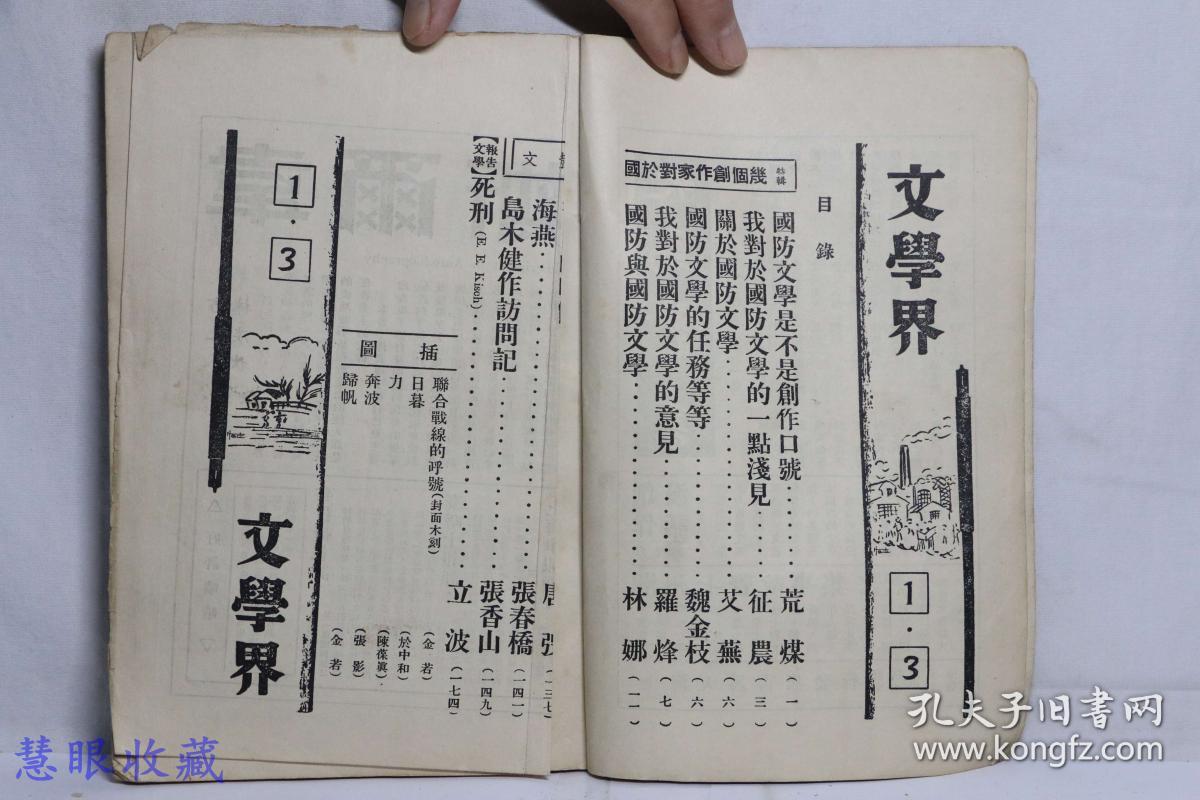 文學界
1·3
目錄
特輯 幾個創作家對於國
國防文學是不是創作口號……荒煤(一)
我對於國防文學的一點淺見……征農(三)
關於國防文學……艾蕪(六)
國防文學的任務等等……魏金枝(六)
我對於國防文學的意見……羅烽(七)
國防與國防文學……林娜(一一)
唐弢(一三七)
文
海燕……張春橋(一四一)
島木健作訪問記……張香山(一四九)
【報告文學】死刑(E. E. Kisoh)……立波(一七四)
插圖
聯合戰線的呼號(封面木刻)(金若)
日暮(於中和)
力(陳葆眞)
奔波(張影)
歸帆(金若)
1·3
文學界
慧眼收藏
孔夫子旧书网
www.kongfz.com